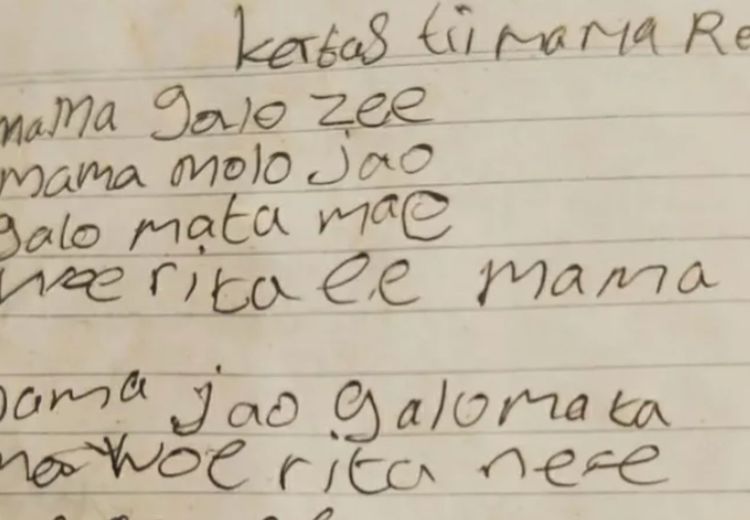 kertas tii mama Re
mama galo zee
mama molo jao
galo mata mae
woe rita ee mama
mama jao galo mata
mae woe rita nese